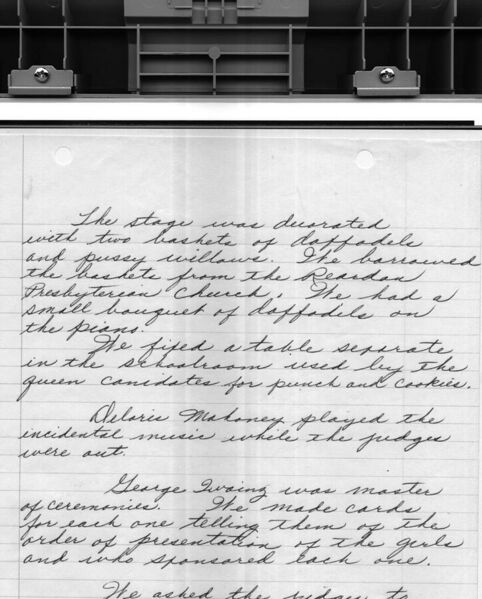 The stage was decorated
with two baskets of daffodels
and pussy willows. We barrowed
the baskets from the Reardan
Presbyterian Church. We had a
small bouquet of daffodels on
the piano.
We fixed a table separate
in the schoolroom used by the
queen canidates for punch and cookies.
Deloris Mahoney played the
incidental music while the judges
were out.
George was master
of ceremonies. We made cards
for each one telling them of the
order of presentation of the girls
and who sponsored each one.
We asked the judges to